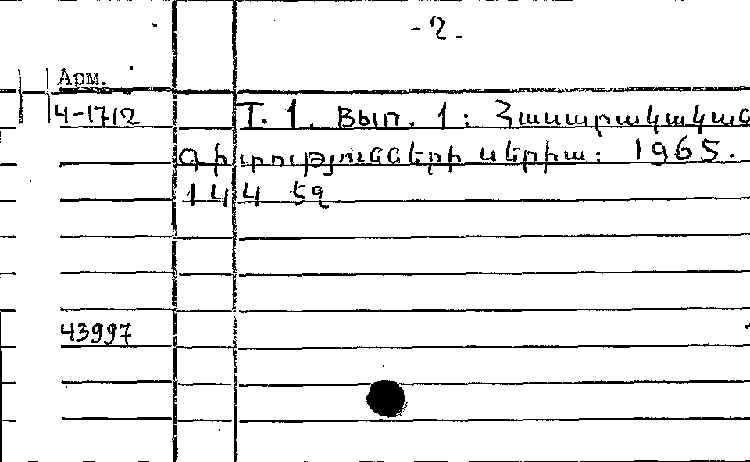 -2.
Арм.
4-1712
Т. 1. Вып. 1: Հասարակական
գիտությունների սերիա: 1965.
144 էջ
43997